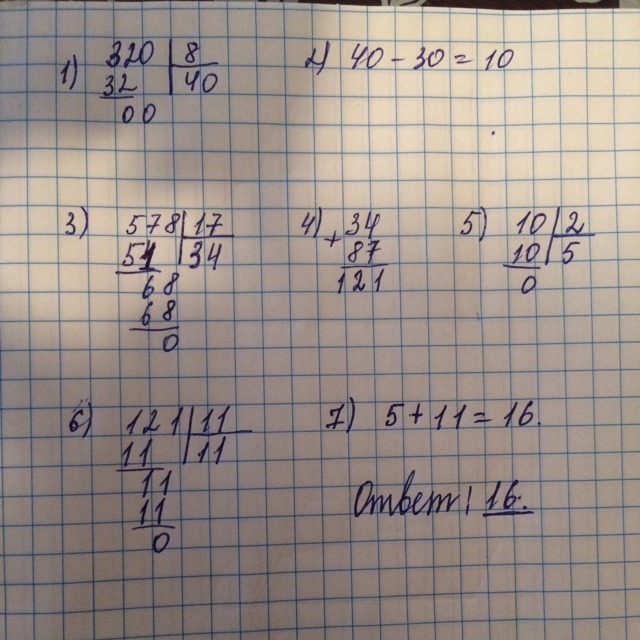 1) 320 | 8
32 | 40
00
2) 40 - 30 = 10
3) 578 | 17
51 | 34
68
68
0
4) 34
+ 87
121
5) 10 | 2
10 | 5
0
6) 121 | 11
11 | 11
11
11
0
7) 5 + 11 = 16.
Ответ: 16.